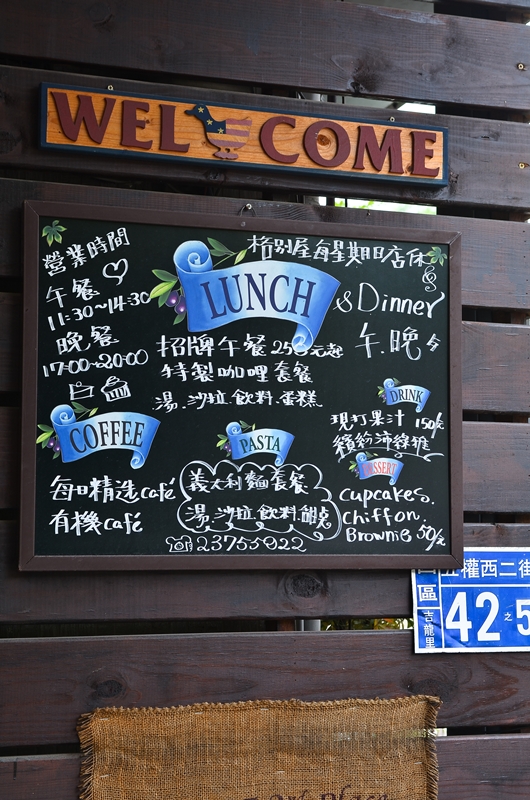 WELCOME
營業時間
午餐
11:30~14:30
晚餐
17:00~20:00
格別屋每星期日店休
LUNCH
& Dinner
午.晚
招牌午餐 250元起
特製咖哩套餐
湯.沙拉.飲料.蛋糕
DRINK
現打果汁 150/元
繽紛沛綠雅
COFFEE
每日精选café
有機café
PASTA
義大利麵套餐
湯.沙拉.飲料.甜点
DESSERT
Cupcakes.
Chiffon.
Brownie 50/元
☎23755922
權西二街
區
吉龍里
42之5